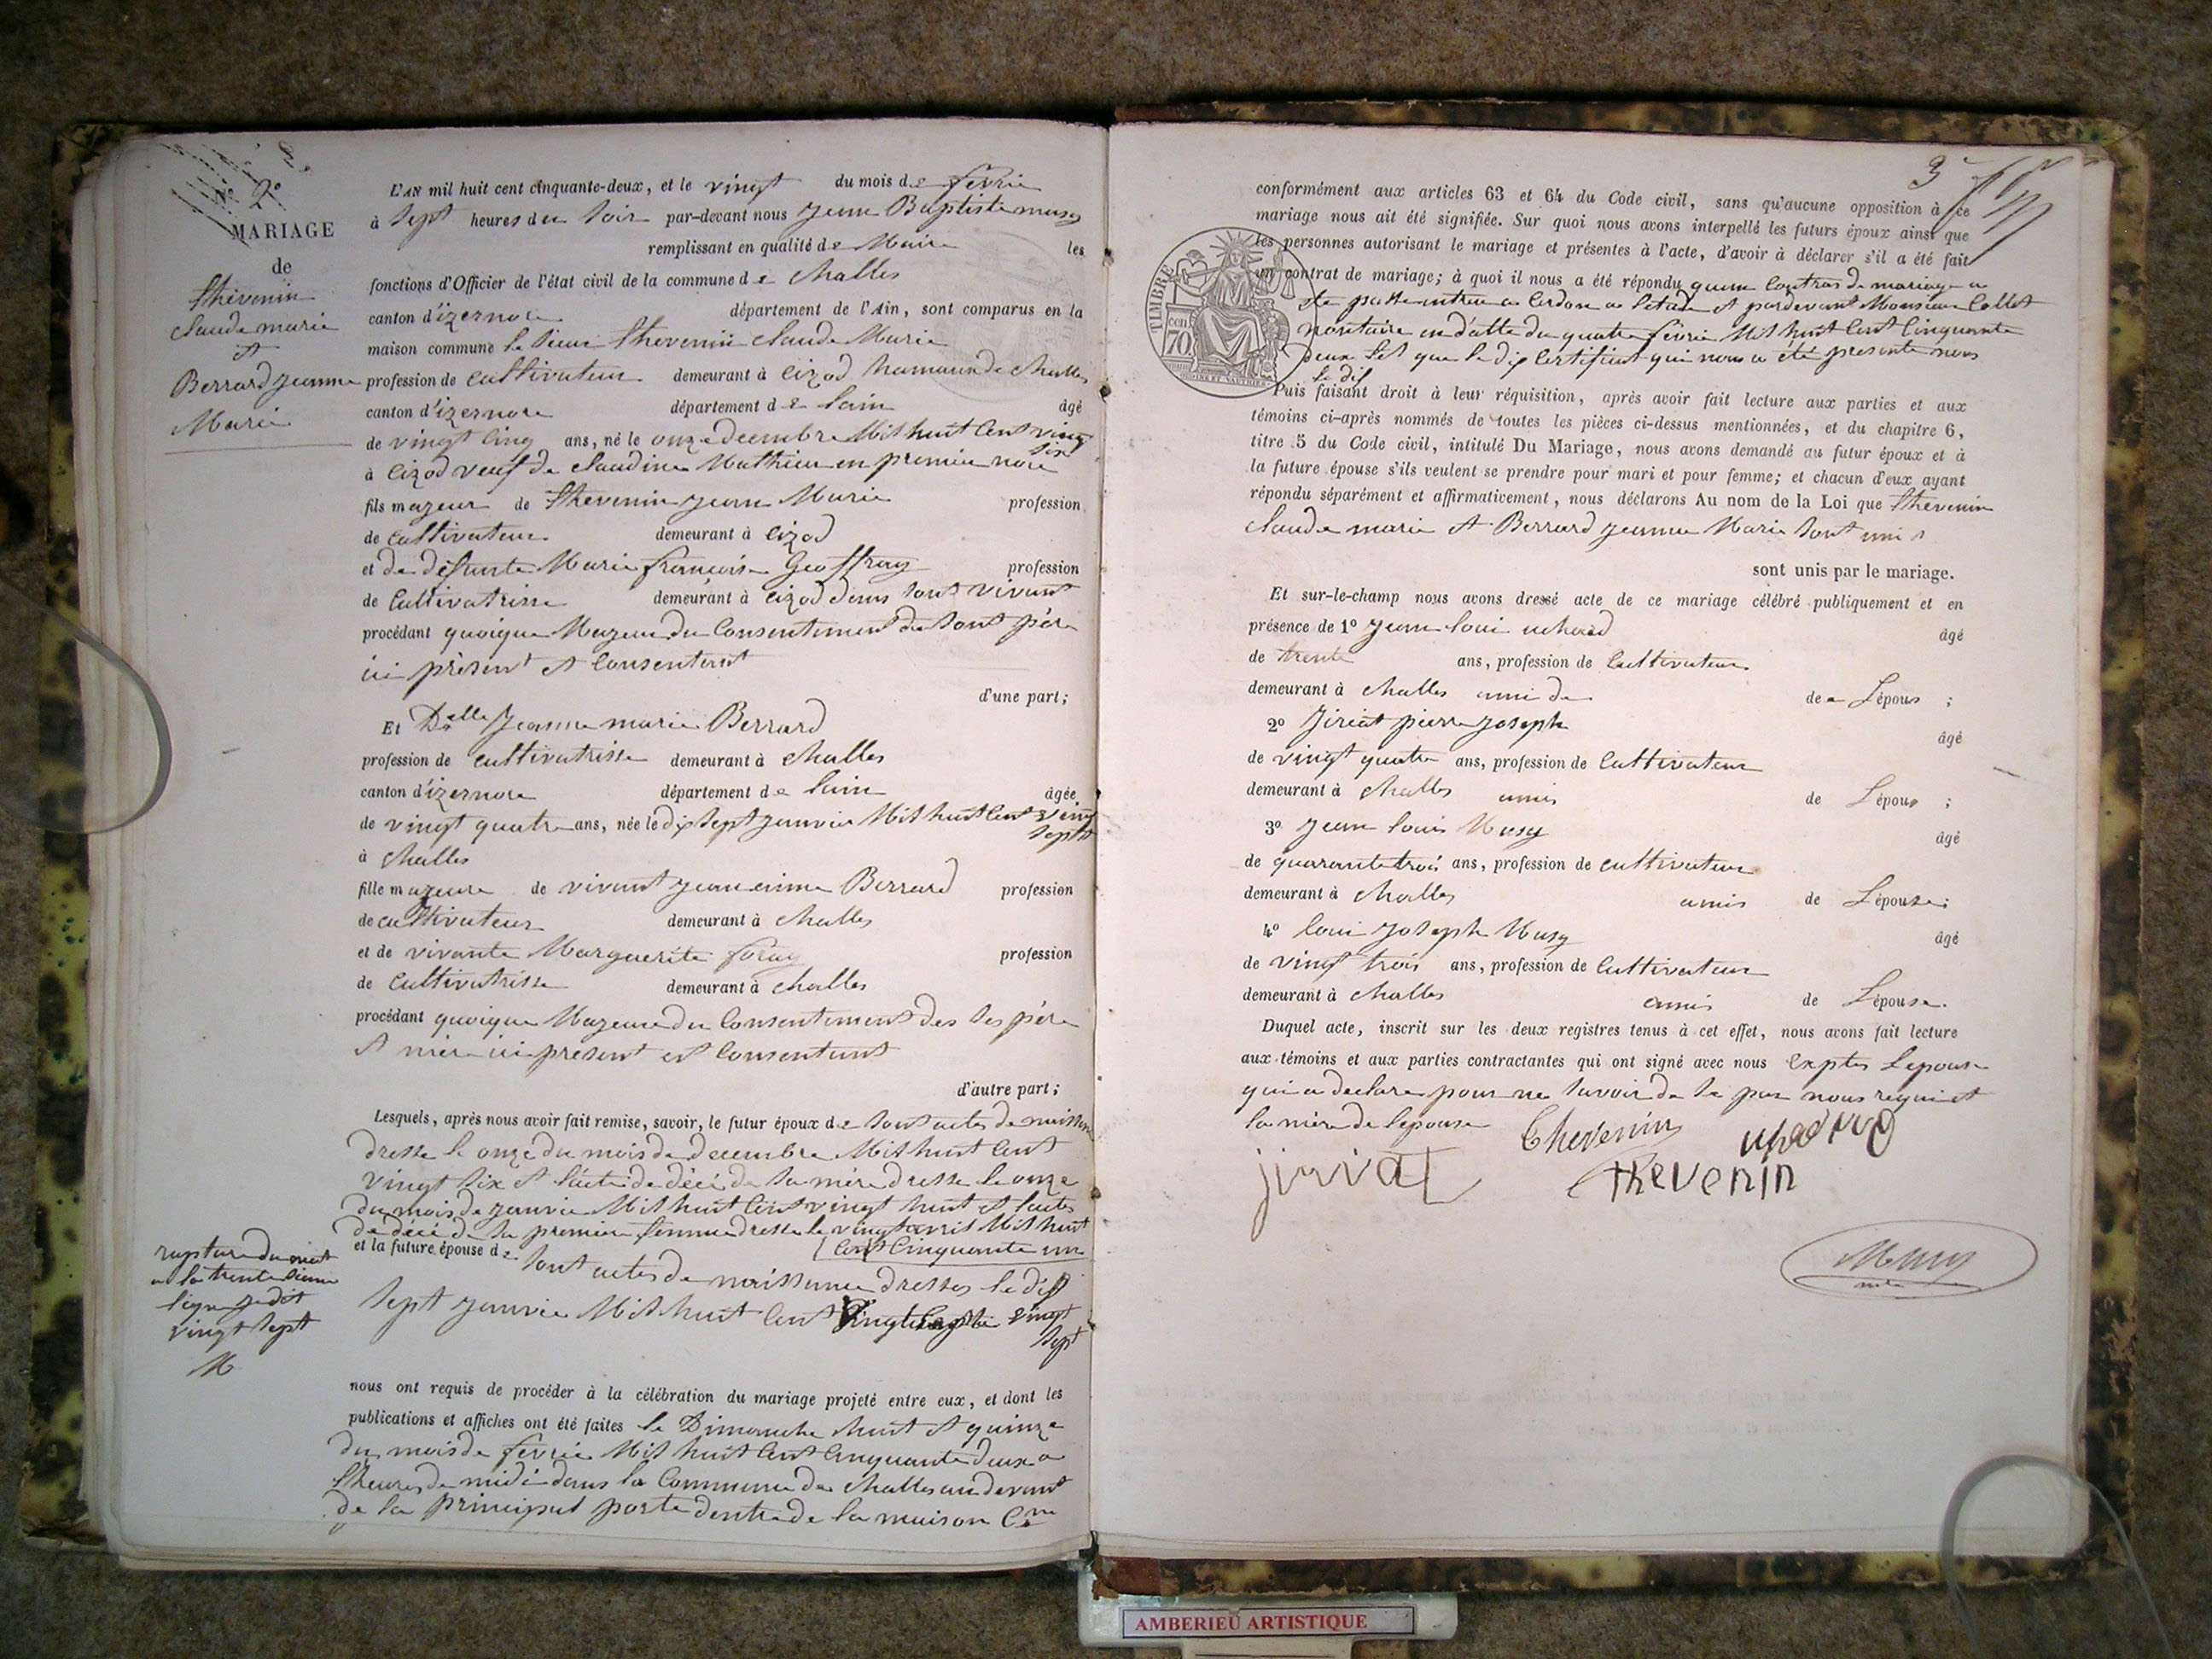 N° 2e
MARIAGE
de
thévenin
claude marie
et
Berrard jeanne
Marie
L'AN mil huit cent cinquante-deux, et le vingt du mois de fevrie
à sept heures du soir par-devant nous jean Baptiste musy
remplissant en qualité de Maire les
fonctions d'Officier de l'état civil de la commune de challes
canton d'izernore département de l'Ain, sont comparus en la
maison commune le sieur thevenin claude Marie
profession de cultivateur demeurant à cizod hamaux de challes
canton d'izernore département de lain âgé
de vingt cinq ans, né le onze decembre Mil huit cent vingt
six
à cizod veuf de claudine Mathieu en premier noce
fils majeur de thevenin jean Marie profession
de cultivateur demeurant à cizod
et de défunte Marie françoise Geoffray profession
de Cultivatrisse demeurant à cizod dans sont vivant
procédant quoique Mageur du Consentiment de sont père
ici présent et Consentent
d'une part;
Et Delle Jeanne marie Berrard
profession de cultivatrisse demeurant à challes
canton d'izernore département de lain âgée
de vingt quatre ans, née le dix sept janvier Mil huit cent vingt
sept
à challes
fille mageure de vivant jean aime Berrard profession
de cultivateur demeurant à challes
et de vivante Marguerite foray profession
de cultivatrisse demeurant à challes
procédant quoique Mageure du Consentiment des ses père
et mère ici présent et Consentent
d'autre part;
Lesquels, après nous avoir fait remise, savoir, le futur époux de sont actes de naissance
dresse le onze du mois de decembre Mil huit cent
vingt six et l'acte de décé de sa mère dresse le onze
du mois de janvier Mil huit cent vingt huit et l'actes
de décé de sa premier femme dresse le vingt avril Mil huit
cent Cinquante un
et la future épouse de sont actes de naissance dresses le dix
sept janvie Mil huit cent vingt
sept
rupture du mot
a la trente sieme
ligne je dit
vingt sept
M
nous ont requis de procéder à la célébration du mariage projeté entre eux, et dont les
publications et affiches ont été faites le Dimanche huit et quinze
du mois de fevrie Mil huit cent cinquante deux a
lheures de midi dans la Commune de challes au devant
de la principal porte dentre de la maison Cne
3
conformément aux articles 63 et 64 du Code civil, sans qu'aucune opposition à ce
mariage nous ait été signifiée. Sur quoi nous avons interpellé les futurs époux ainsi que
les personnes autorisant le mariage et présentes à l'acte, d'avoir à déclarer s'il a été fait
un contrat de mariage; à quoi il nous a été répondu quun contras de mariage a
ete passe entreu a Cerdon a letude et pardevant Monsieur Collet
nontaire en datte du quatre fevrie Mil huit cent cinquante
deux tel que le dis Certificat qui nous a été presente nous
le dis
TIMBRE
cen
70
Puis faisant droit à leur réquisition, après avoir fait lecture aux parties et aux
témoins ci-après nommés de toutes les pièces ci-dessus mentionnées, et du chapitre 6,
titre 5 du Code civil, intitulé Du Mariage, nous avons demandé au futur époux et à
la future épouse s'ils veulent se prendre pour mari et pour femme; et chacun d'eux ayant
répondu séparément et affirmativement, nous déclarons Au nom de la Loi que thevenin
claude marie et Berrard jeanne Marie sont unis
sont unis par le mariage.
Et sur-le-champ nous avons dressé acte de ce mariage célébré publiquement et en
présence de 1° jean loui uchard âgé
de trente ans, profession de cultivateur
demeurant à challes ami de de Lépous ;
2° jiriat pierre joseph âgé
de vingt quatre ans, profession de Cultivateur
demeurant à challes amis de Lépous ;
3° jean louis Musy âgé
de quarante trois ans, profession de cultivateur
demeurant à challes amis de Lépouse;
4° loui joseph Musy âgé
de vingt trois ans, profession de Cultivateur
demeurant à challes amis de Lépouse.
Duquel acte, inscrit sur les deux registres tenus à cet effet, nous avons fait lecture
aux témoins et aux parties contractantes qui ont signé avec nous exptes Lepouse
qui a declare pour ne savoir de se par nous requi et
la mère de lepouse
Thevenin uchard
jiriat thevenin
Musy
AMBERIEU ARTISTIQUE